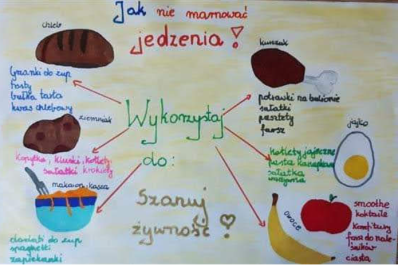 Jak nie marnować
jedzenia!
chleb
Grzanki do zup
tosty
bułka tarta
kwas chlebowy
ziemniak
Kopytka, kluski, kotlety
sałatki krokiety
makaron, kasza
dodatki do zup
spaghetti
zapiekanki
Wykorzystaj
do:
Szanuj
żywność!
kurczak
potrawki na bulionie
sałatki
pasztety
farsz
jajko
kotlety jajeczne
pasta kanapkowa
sałatka
warzywna
owoce
smoothie
koktaile
konfitury
farsz do nale-
śników
ciasta